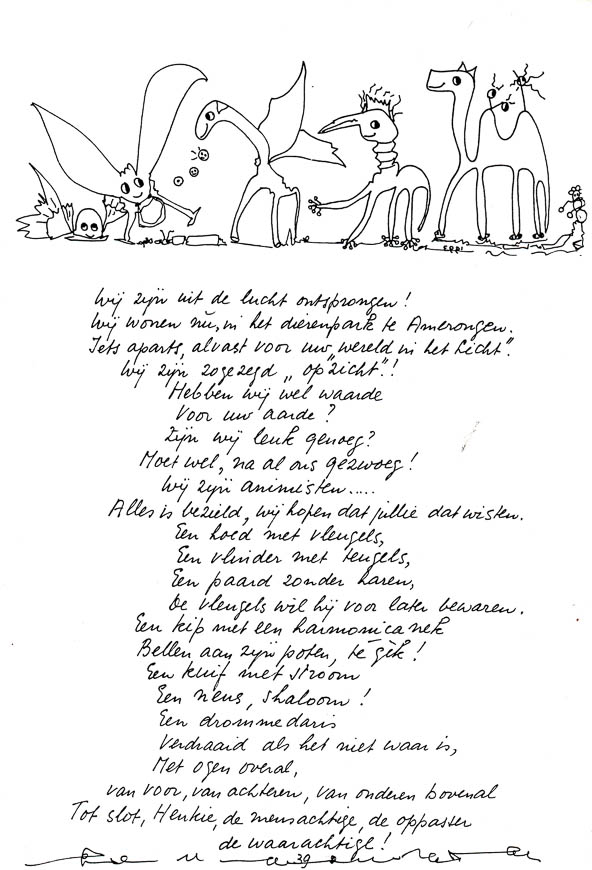 EPPI
Wij zijn uit de lucht ontsprongen!
Wij wonen nu, in het dierenpark te Amerongen.
Iets aparts, alvast voor uw „wereld in het Licht".
Wij zijn zogezegd „op zicht"!
Hebben wij wel waarde
voor uw aarde?
Zijn wij leuk genoeg?
Moet wel, na al ons gezwoeg!
Wij zijn animisten.....
Alles is bezield, wij hopen dat jullie dat wisten.
Een hoed met vleugels,
Een vlinder met teugels,
Een paard zonder haren,
De vleugels wil hij voor later bewaren.
Een kip met een harmonica nek
Bellen aan zijn poten, te gek!
Een kuif met stroom
Een neus, shaloom!
Een drommedaris
Verdraaid als het niet waar is,
Met ogen overal,
van voor, van achteren, van onderen bovenal
Tot slot, Henkie, de mensachtige, de oppasser
de waarachtige!
39